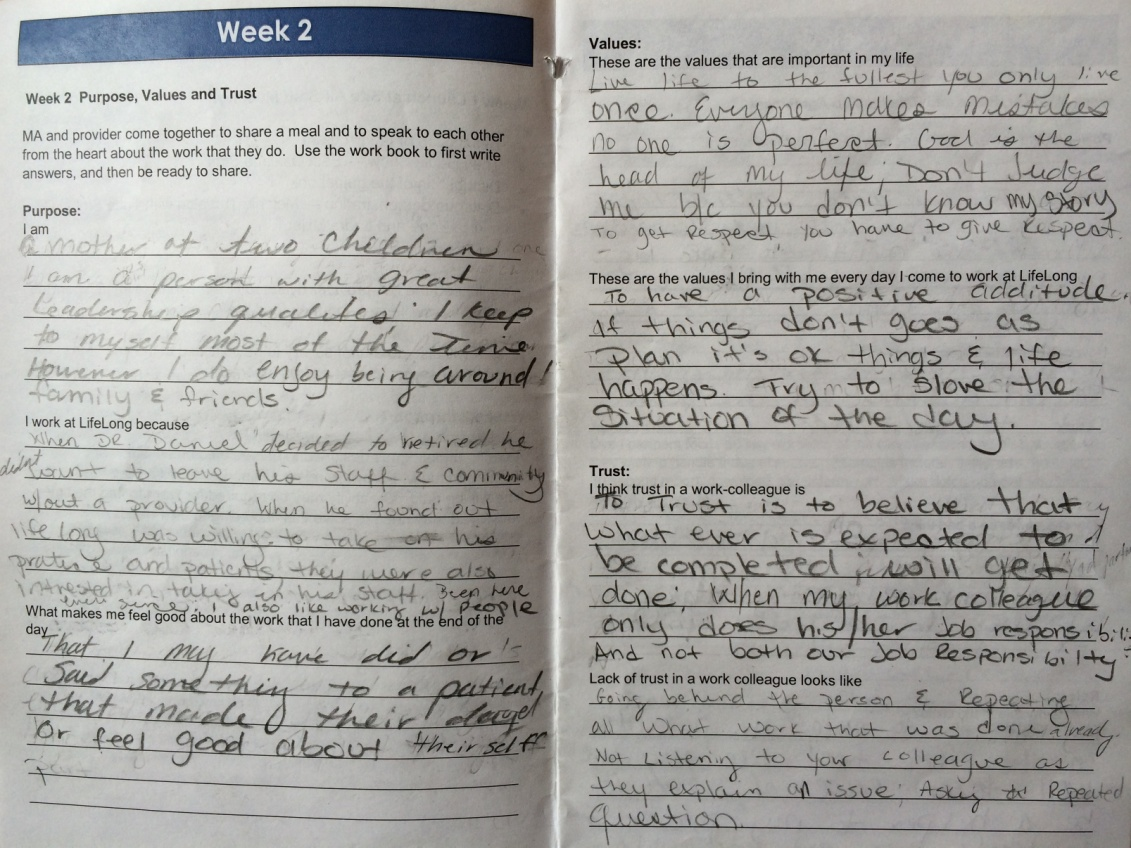 Week 2
Week 2 Purpose, Values and Trust
MA and provider come together to share a meal and to speak to each other
from the heart about the work that they do. Use the work book to first write
answers, and then be ready to share.
Purpose:
I am
a mother of two Children
I am a person with great
Leadership qualites I keep
to myself most of the time
However I do enjoy being around
family & friends.
I work at LifeLong because
When DR. Daniel decided to retired he
didn't want to leave his Staff & community
w/out a provider. When he found out
life long was willing to take on his
pratice and patients they were also
intrested in taking in his staff. Been here
every since. I also like working w/ people
What makes me feel good about the work that I have done at the end of the
day
That I my have did or
Said something to a patient,
that made their day
Or feel good about their selff
Values:
These are the values that are important in my life
Live life to the fullest you only live
once. Everyone Makes Mistakes
no one is perfect. God is the
head of my life; Don't Judge
me b/c you don't know my Story
To get Respect, you have to give Respect.
These are the values I bring with me every day I come to work at LifeLong
To have a positive additude.
If things don't goes as
Plan it's ok things & life
happens. Try to Slove the
Situation of the day.
Trust:
I think trust in a work-colleague is
To Trust is to believe that
what ever is expected to
be completed will get
done; When my work colleague
only does his/her Job responsibili
And not both our Job Responsibilty
Lack of trust in a work colleague looks like
Going behind the person & Repeating
all what work that was done already.
Not Listening to your colleague as
they explain an issue; Asking Repeated
question.